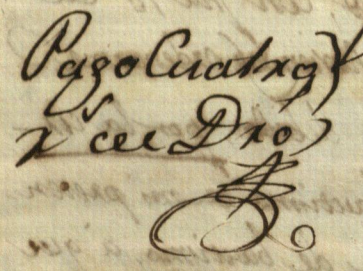 Pago Cuatro
rs de Dro